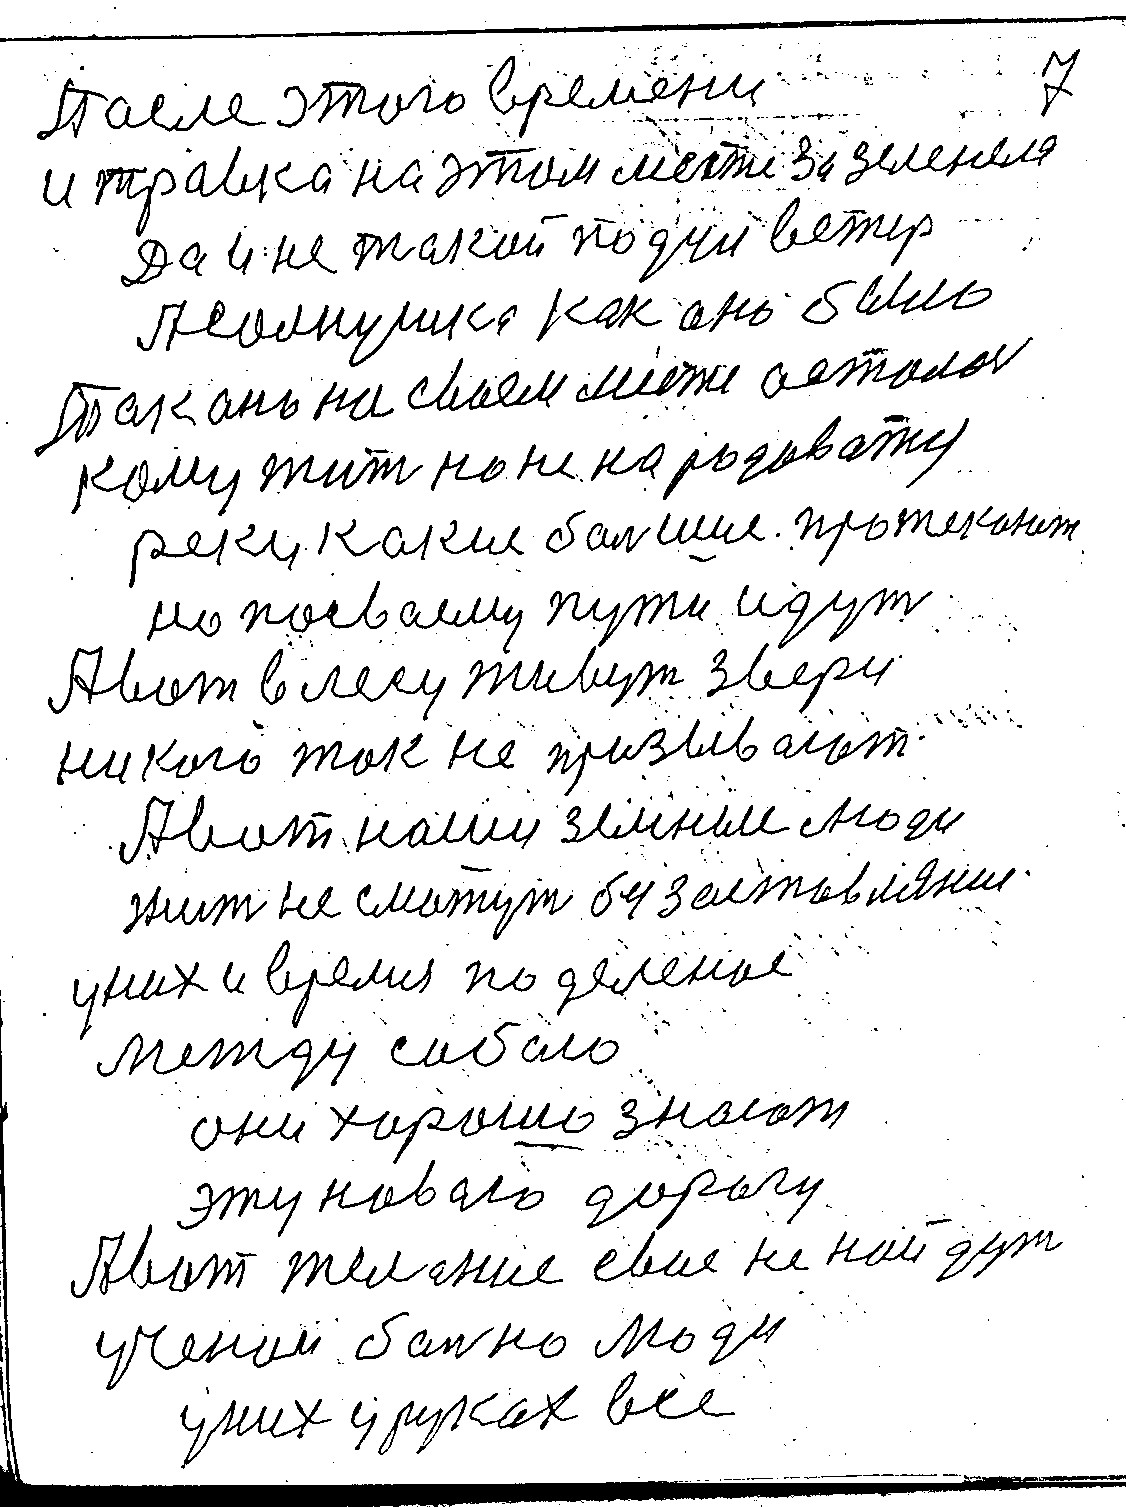 7
После этого времени
и травка на этом месте зазеленела
Да и не такой подул ветер
А солнушка как оно было
Так оно на своем месте осталос
кому жит но не нарадоватц
реки какие балшие протекают
но посваему пути идут
А вот в лесу живут звери
никого так не призывают
А вот наши земные люди
жит не смогут без заставляния
уних и время поделеное
между сабою
они хорошо знают
эту новаю дорогу
А вот желание свае не найдут
ученои балко люди
уних у руках все